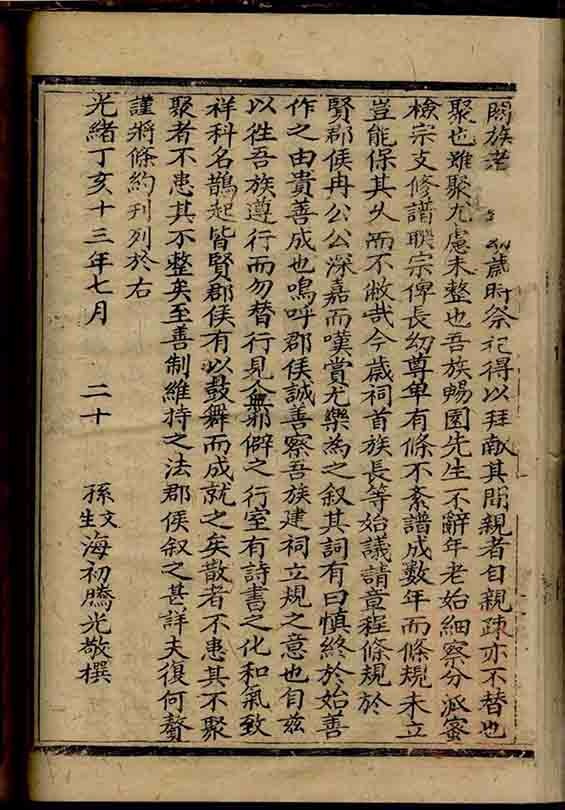 闔族老 歲時祭祀得以拜獻其間親者自親疎亦不替也
聚也雖聚尤慮未整也吾族暢園先生不辭年老始細察分派蜜
檢宗支修譜聯宗俾長幼尊卑有條不紊譜成數年而條規未立
豈能保其久而不敝哉今歲祠首族長等始議請章程條規於
賢郡侯冉公公深嘉而嘆賞尤樂為之叙其詞有曰慎終於始善
作之由貴善成也嗚呼郡侯誠善察吾族建祠立規之意也自茲
以徃吾族遵行而勿替行見僉無邪僻之行室有詩書之化和氣致
祥科名鵲起皆賢郡侯有以鼓舞而成就之矣散者不患其不聚
聚者不患其不整矣至善制維持之法郡侯叙之甚詳夫復何贅
謹將條約刋列於右
光緒丁亥十三年七月 二十 孫文生海初騰光敬撰